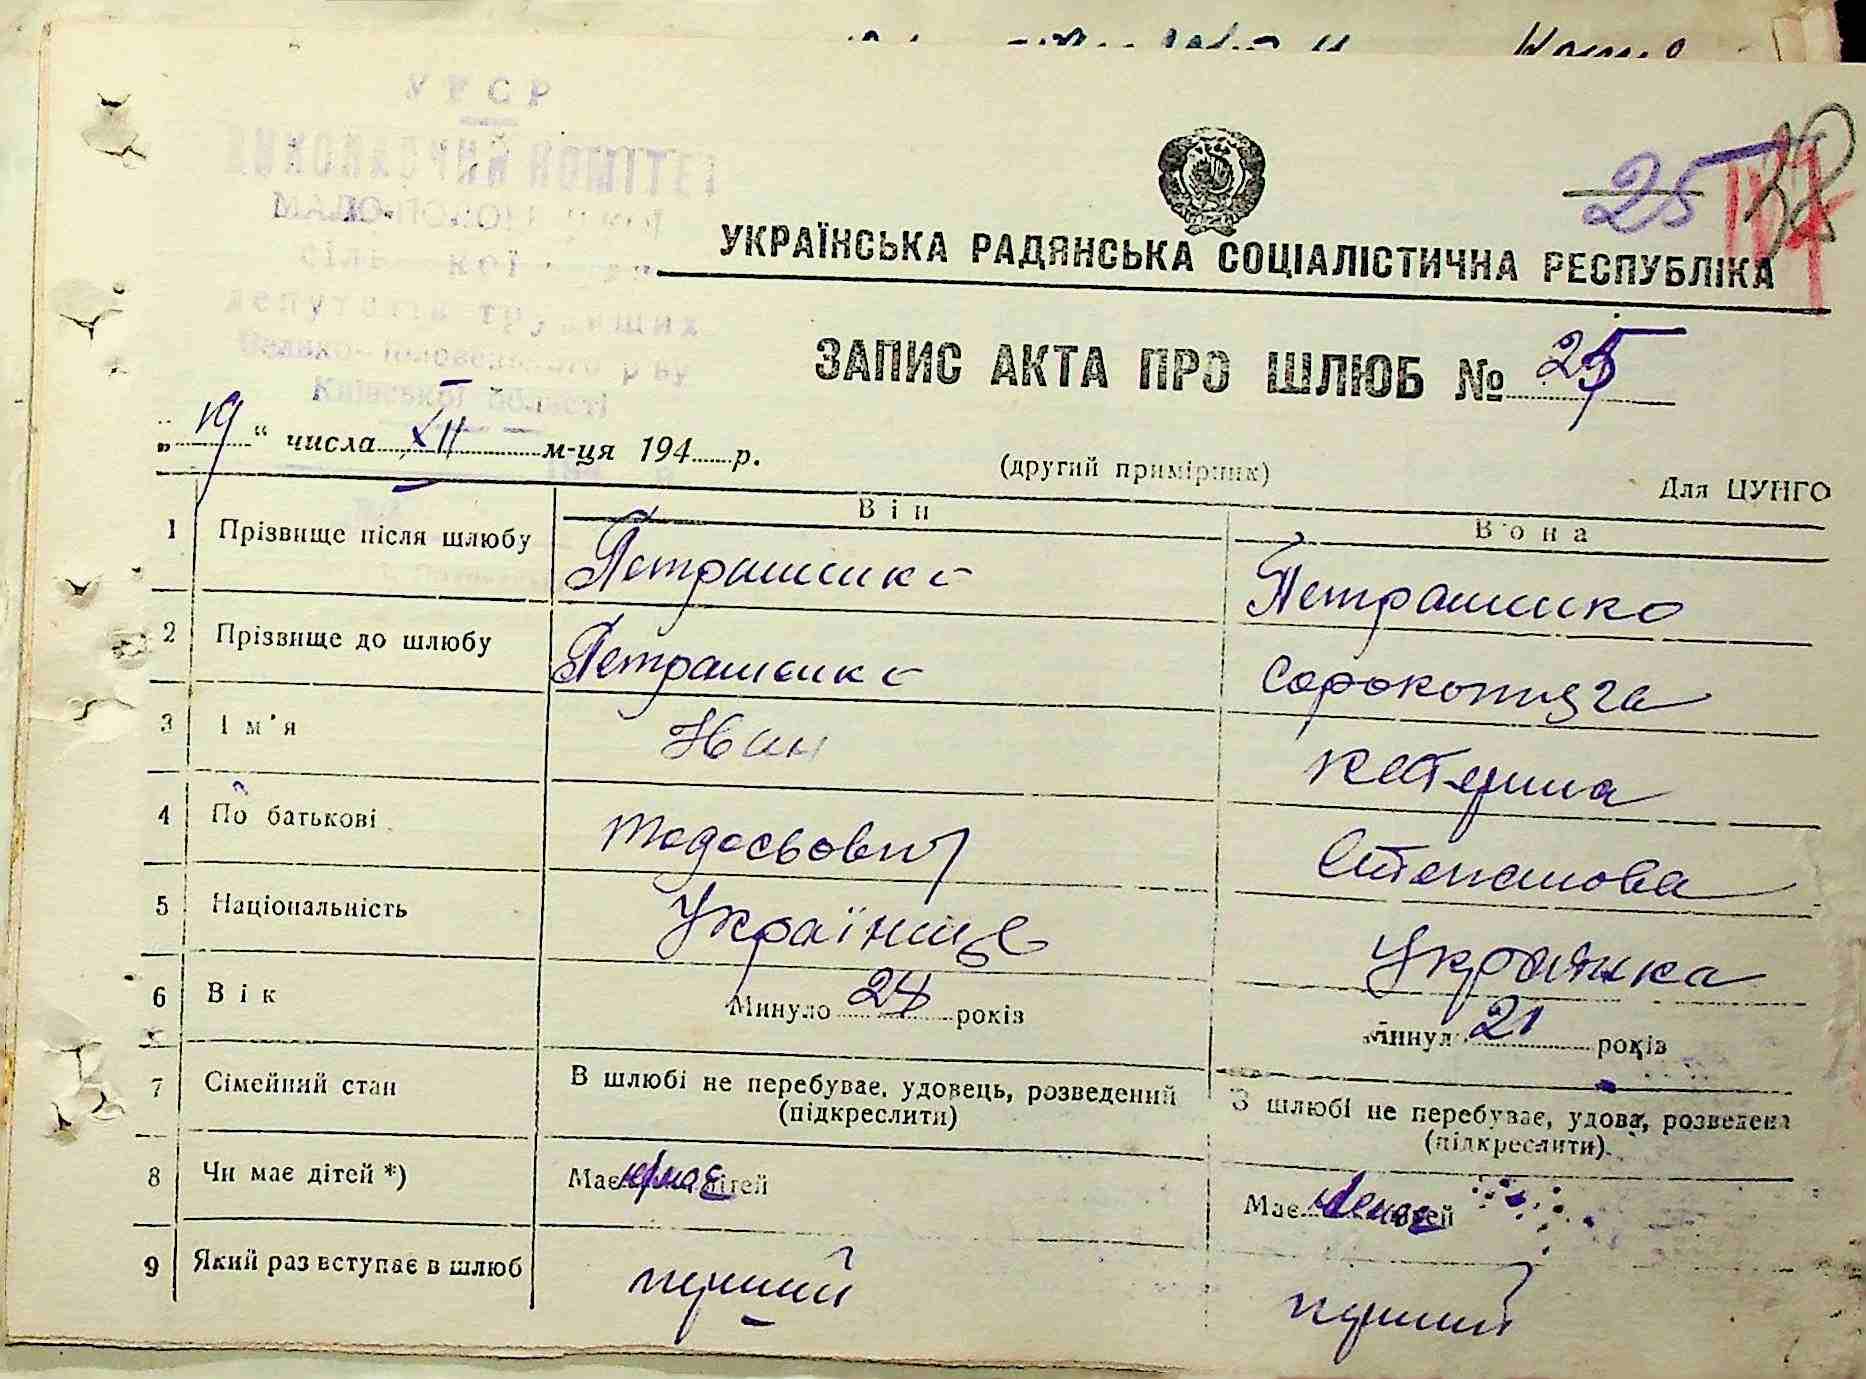 УРСР
ВИКОНАВЧИЙ КОМІТЕТ
МАЛО-ПОЛОВЕЦЬКОЇ
сільської ради
депутатів трудящих
Велико-Половецького р-ну
Київської області
25
38
УКРАЇНСЬКА РАДЯНСЬКА СОЦІАЛІСТИЧНА РЕСПУБЛІКА
ЗАПИС АКТА ПРО ШЛЮБ № 25
„19“ числа XII м-ця 194 р.
(другий примірник)
Для ЦУНГО
Він Вона
1 Прізвище після шлюбу Петрашенко Петрашенко
2 Прізвище до шлюбу Петрашенко Сорокотяга
3 Ім'я Іван Катерина
4 По батькові Тодосьович Степанова
5 Національність Українець Українка
6 Вік Минуло 24 років Минуло 21 років
7 Сімейний стан В шлюбі не перебуває, удовець, розведений З шлюбі не перебуває, удова, розведена
(підкреслити) (підкреслити).
8 Чи має дітей *) Має немає дітей Має немає дітей
9 Який раз вступає в шлюб перший перший